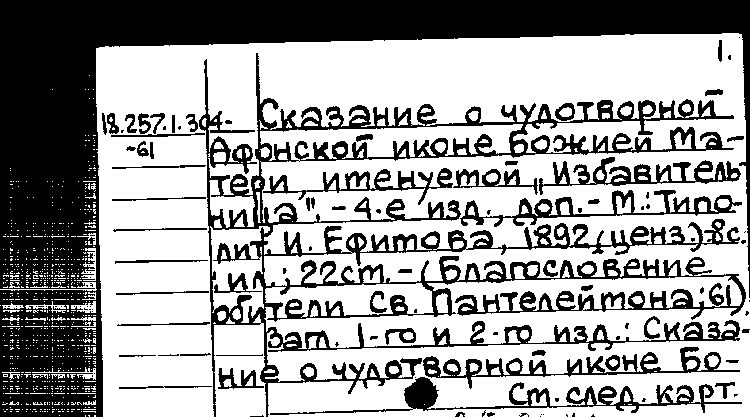 1.
18.257.1.304- Сказание о чудотворной
-61 Афонской иконе Божией Ма-
тери, именуемой „Избавитель-
ница". - 4-е изд., доп. - М.: Типо-
лит. И. Ефимова, 1892 (ценз.).-8с.
: ил.; 22см. - (Благословение
обители Св. Пантелеймона; 61).
Загл. 1-го и 2-го изд.: Сказа-
ние о чудотворной иконе Бо-
См. след. карт.